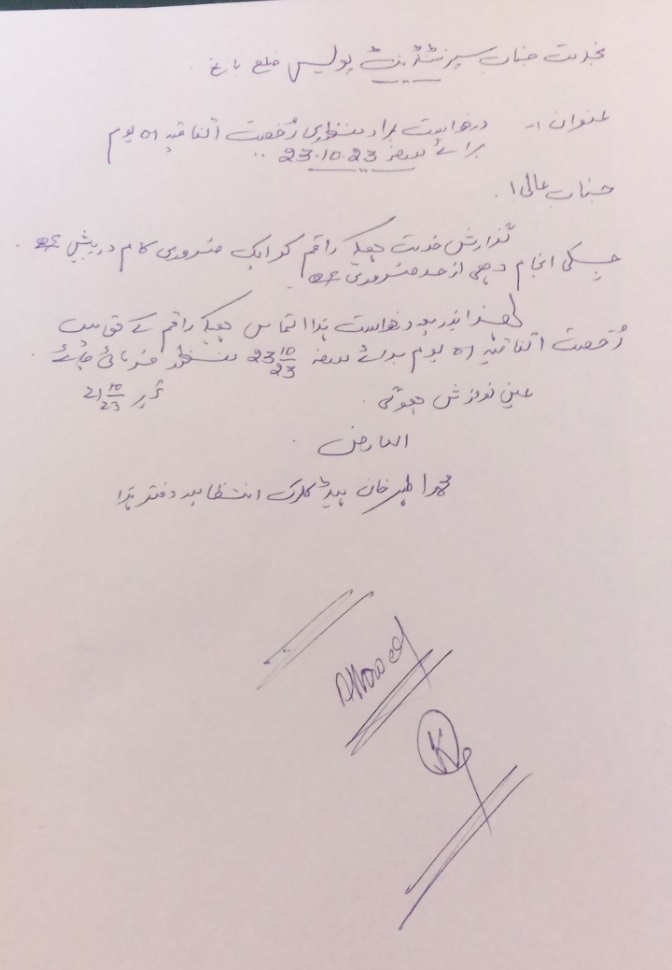 بخدمت جناب سپرنٹنڈنٹ پولیس ضلع باغ
عنوان :۔ درخواست بمراد منظوری رُخصت اتفاقیہ 01 یوم
برائے مورخہ 23.10.23
جناب عالی!
گزارش خدمت ہیکہ راقم کو ایک ضروری کام درپیش ہے
جسکی انجام دہی از حد ضروری ہے
لھذا بذریعہ درخواست ہذا التماس ہیکہ راقم کے حق میں
رُخصت اتفاقیہ 01 یوم برائے مورخہ 23 10/23 منظور فرمائی جائے
عین نوازش ہوگی . تحریر 21 10/23
العارض
محمد اظہر خان ہیڈ کلرک انتظامیہ دفتر ہذا
Allowed